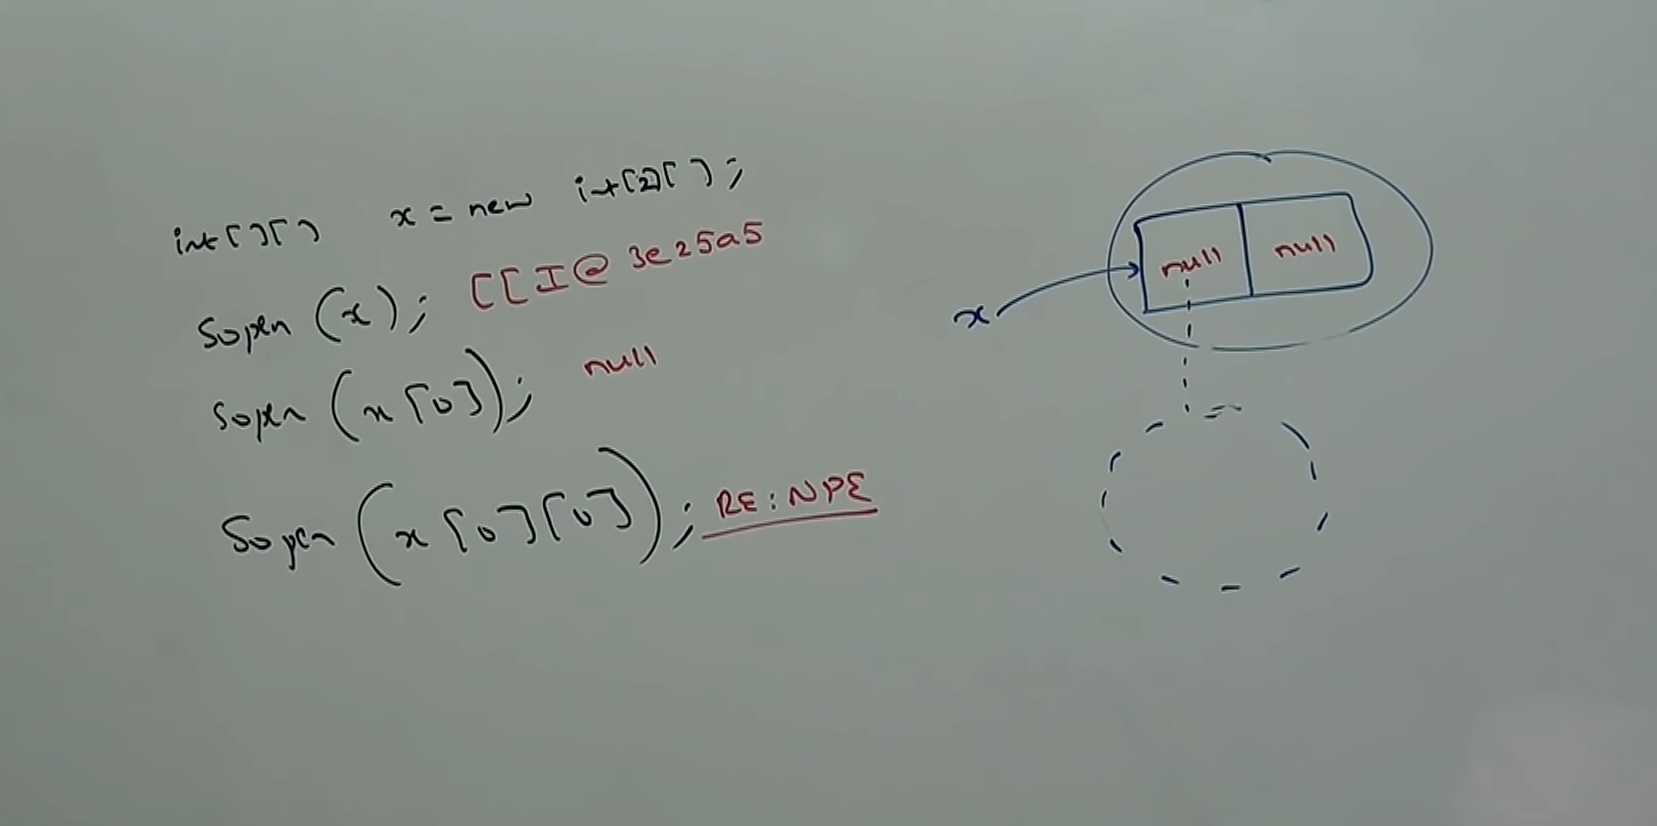 int[][] x = new int[2][];
Sopln (x); [[I@3e25a5
Sopln (x[0]); null
Sopln (x[0][0]); RE:NPE
null null
x